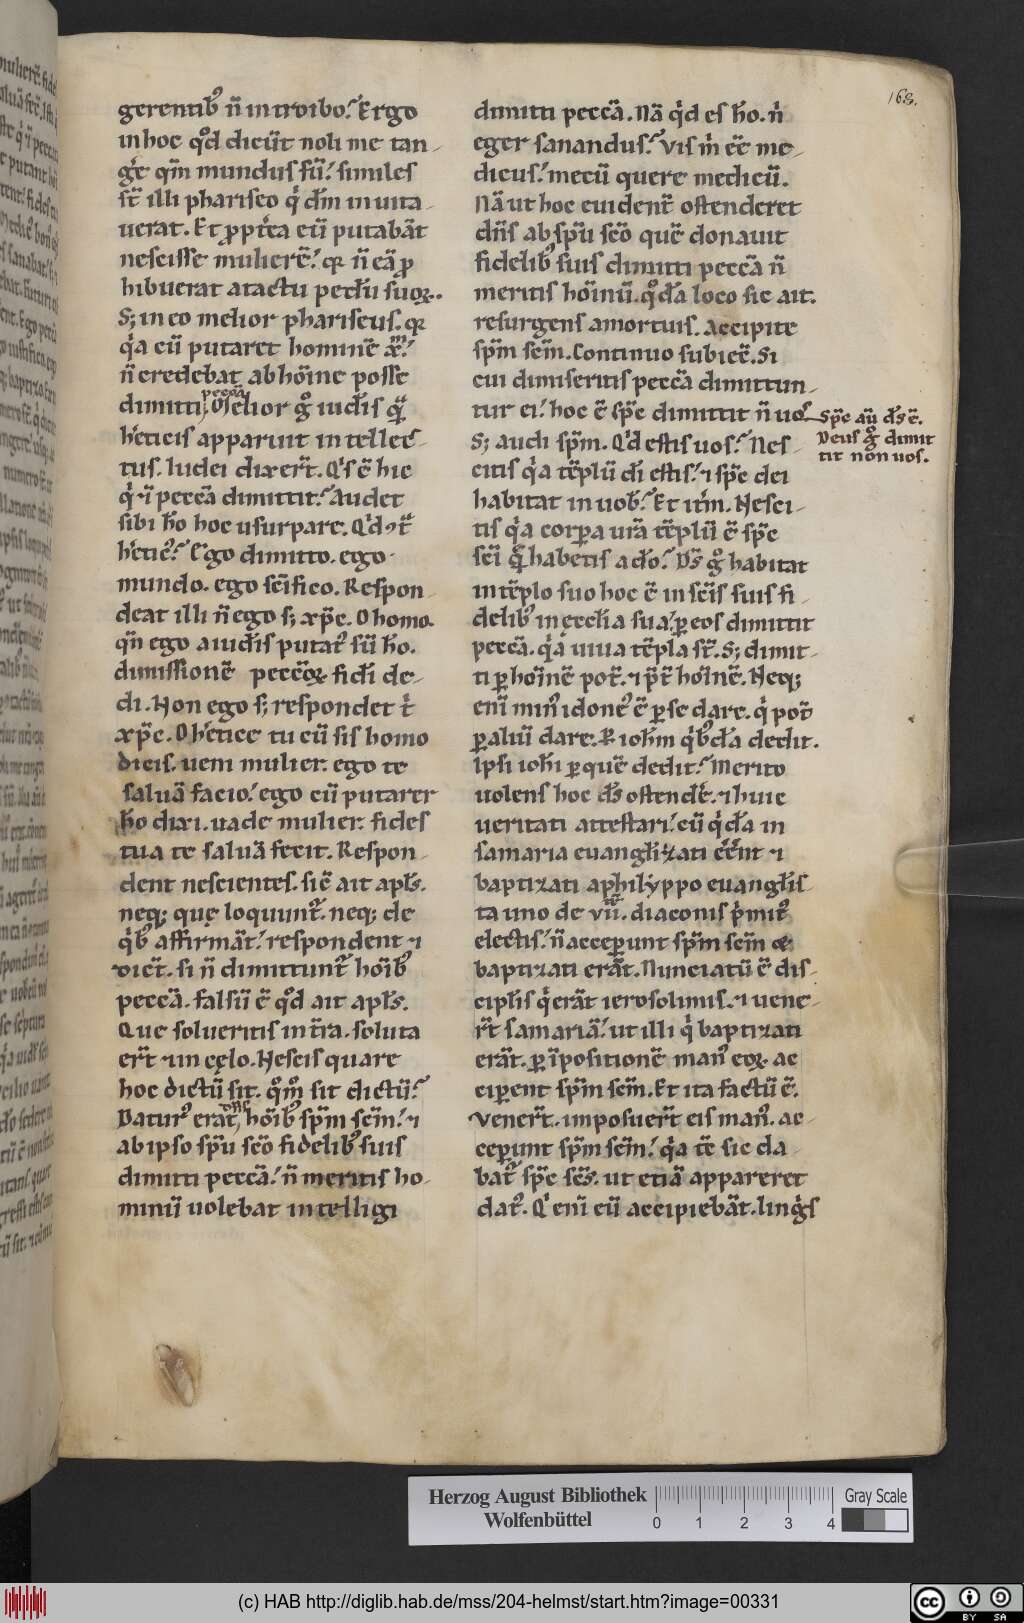 168.
gerentib᷒ n̄ introibo? Ergo
in hoc qd̊ dicūt noli me tan-
gͤre qm̄ mundus sū. similes
st̄ illi phariseo qi dn̄m inuita-
uerat. Et ꝓpt̄ea eū putabāt
nescisse mulierē. qꝛ n̄ eā ꝓ
hibuerat a tactu pedū suoꝝ.
S; in eo melior phariseus. qꝛ
qia eū putaret hominē
n̄ credebat ab hōine posse
dimitti peccā. Melior g̊ iudeis qͣ
hͤticis apparuit intellec-
tus. Iudei dixer̄t. Qis ē hic
qi ⁊ peccā dimittit? Audet
sibi hō hoc usurpare. Qid
hͤtic᷒? Ego dimitto. ego
mundo. ego scīfico. Respon-
deat illi n̄ ego s; xp̄c. O homo.
qn̄ ego a iudeis putat᷒ sū hō.
dimissionē peccōꝝ fidei de-
di. Non ego s; respondet t̄
xp̄c. O hͤtice tu cū sis homo
dicis. ueni mulier. ego te
saluā facio. ego cū putarer
hō dixi. uade mulier. fides
tua te saluā fecit. Respon-
dent nescientes. sic̄ ait apl̄s.
neq; que loquunt᷒. neq; de
qib᷒ affirmāt. respondent ⁊
dict̄. si n̄ dimittunt᷒ hōib᷒
peccā. falsū ē qd̊ ait apl̄s.
Que solueritis in t̄ra. soluta
er̄t ⁊ in cęlo. Nescis quare
hoc dictū sit. qm̊̊ sit dictū?
Datur᷒ erat dn̄s hōib᷒ spm̄ scm̄. ⁊
ab ipso spū scō fidelib᷒ suis
dimitti peccā. n̄ meritis ho-
minū uolebat intelligi
dimitti peccā. Nā qid es hō. ni
eger sanandus? Vis mi eē me-
dicus. mecū quere medicū.
Nā ut hoc euident᷒ ostenderet
dn̄s ab spū scō quē donauit
fidelib᷒ suis dimitti peccā n̄
meritis hōinū. qd̊ā loco sic ait.
resurgens a mortuis. Accipite
spm̄ scm̄. Continuo subiec̄. Si
cui dimiseritis peccā dimittun-
tur ei. hoc ē spc̄ dimittit n̄ uos
S; audi spm̄. Qid estis uos? Nes-
citis qia tēplū dī estis. ⁊ spc̄ dei
habitat in uob̄? Et itm̄. Nesci-
tis qia corpora ur̄a tēplū ē spc̄
scī quē habetis a do? Ds̄ g̊ habitat
in tēplo suo hoc ē in scīs suis fi-
delib᷒ in ęcclīa sua. ꝑ eos dimittit
peccā. qia uiua tēpla st̄. S; dimit-
ti ꝑ hōinē pot̄. ⁊ pt̄ hōinē. Neq;
enī min᷒ idone᷒ ē ꝑ se dare. qi pot̄
ꝑ aliū dare. P iohm̄ qib᷒dā dedit.
Ipsi iohī ꝑ quē dedit? Merito
uolens hoc ds̄ ostendͤe. ⁊ huic
ueritati attestari. cū qidā in
samaria euanglizati eēnt ⁊
baptizati a philyppo euanglis-
ta uno de vii. diaconis pimit᷒
electis. n̄ acceꝑunt spm̄ scm̄ ⁊
baptizati erāt. Nunciatū ē dis-
ciplis qi erāt ierosolimis. ⁊ uene-
r̄t samariā. ut illi qi baptizati
erāt. ꝑ īpositionē man᷒ eoꝝ ac
ciperent spm̄ scm̄. Et ita factū ē.
Vener̄t. imposuer̄t eis man᷒. ac-
ceperunt spm̄ scm̄. qia tē sic da-
bat᷒ spc̄ scs̄. ut etiā appareret
dat᷒. Qi enī eū accipiebāt. lingis
Spc̄ aū ds̄ ē.
Deus g̊ dimit
tit non uos.
Herzog August Bibliothek
Wolfenbüttel
0 1 2 3 4
Gray Scale
(c) HAB http://diglib.hab.de/mss/204-helmst/start.htm?image=00331
cc BY SA